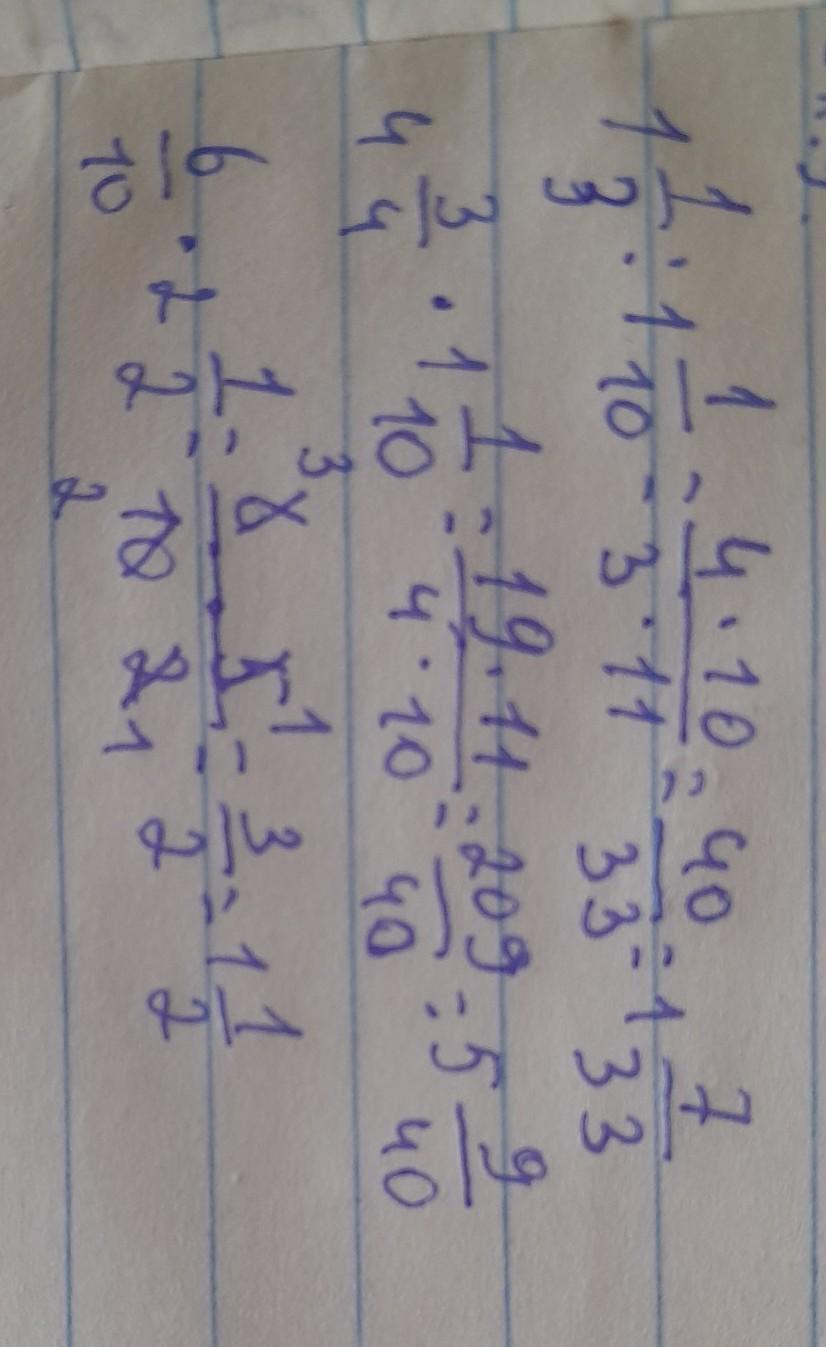 1 1/3 : 1 1/10 = 4·10/3·11 = 40/33 = 1 7/33
4 3/4 · 1 1/10 = 19·11/4·10 = 209/40 = 5 9/40
6/10 · 2 1/2 = 6 3 · 5 1/10 2 · 2 1 = 3/2 = 1 1/2